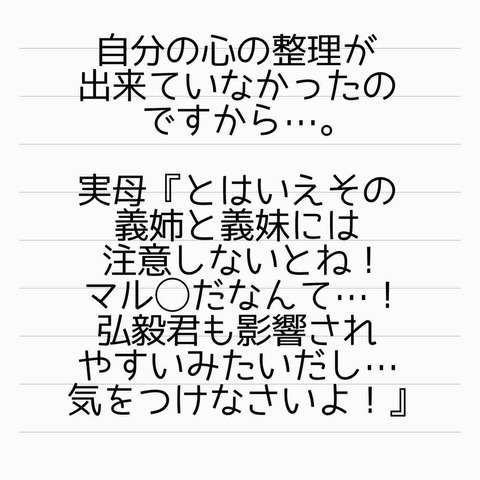 自分の心の整理が
出来ていなかったの
ですから…。
実母『とはいえその
義姉と義妹には
注意しないとね！
マル◯だなんて…！
弘毅君も影響され
やすいみたいだし…
気をつけなさいよ！』